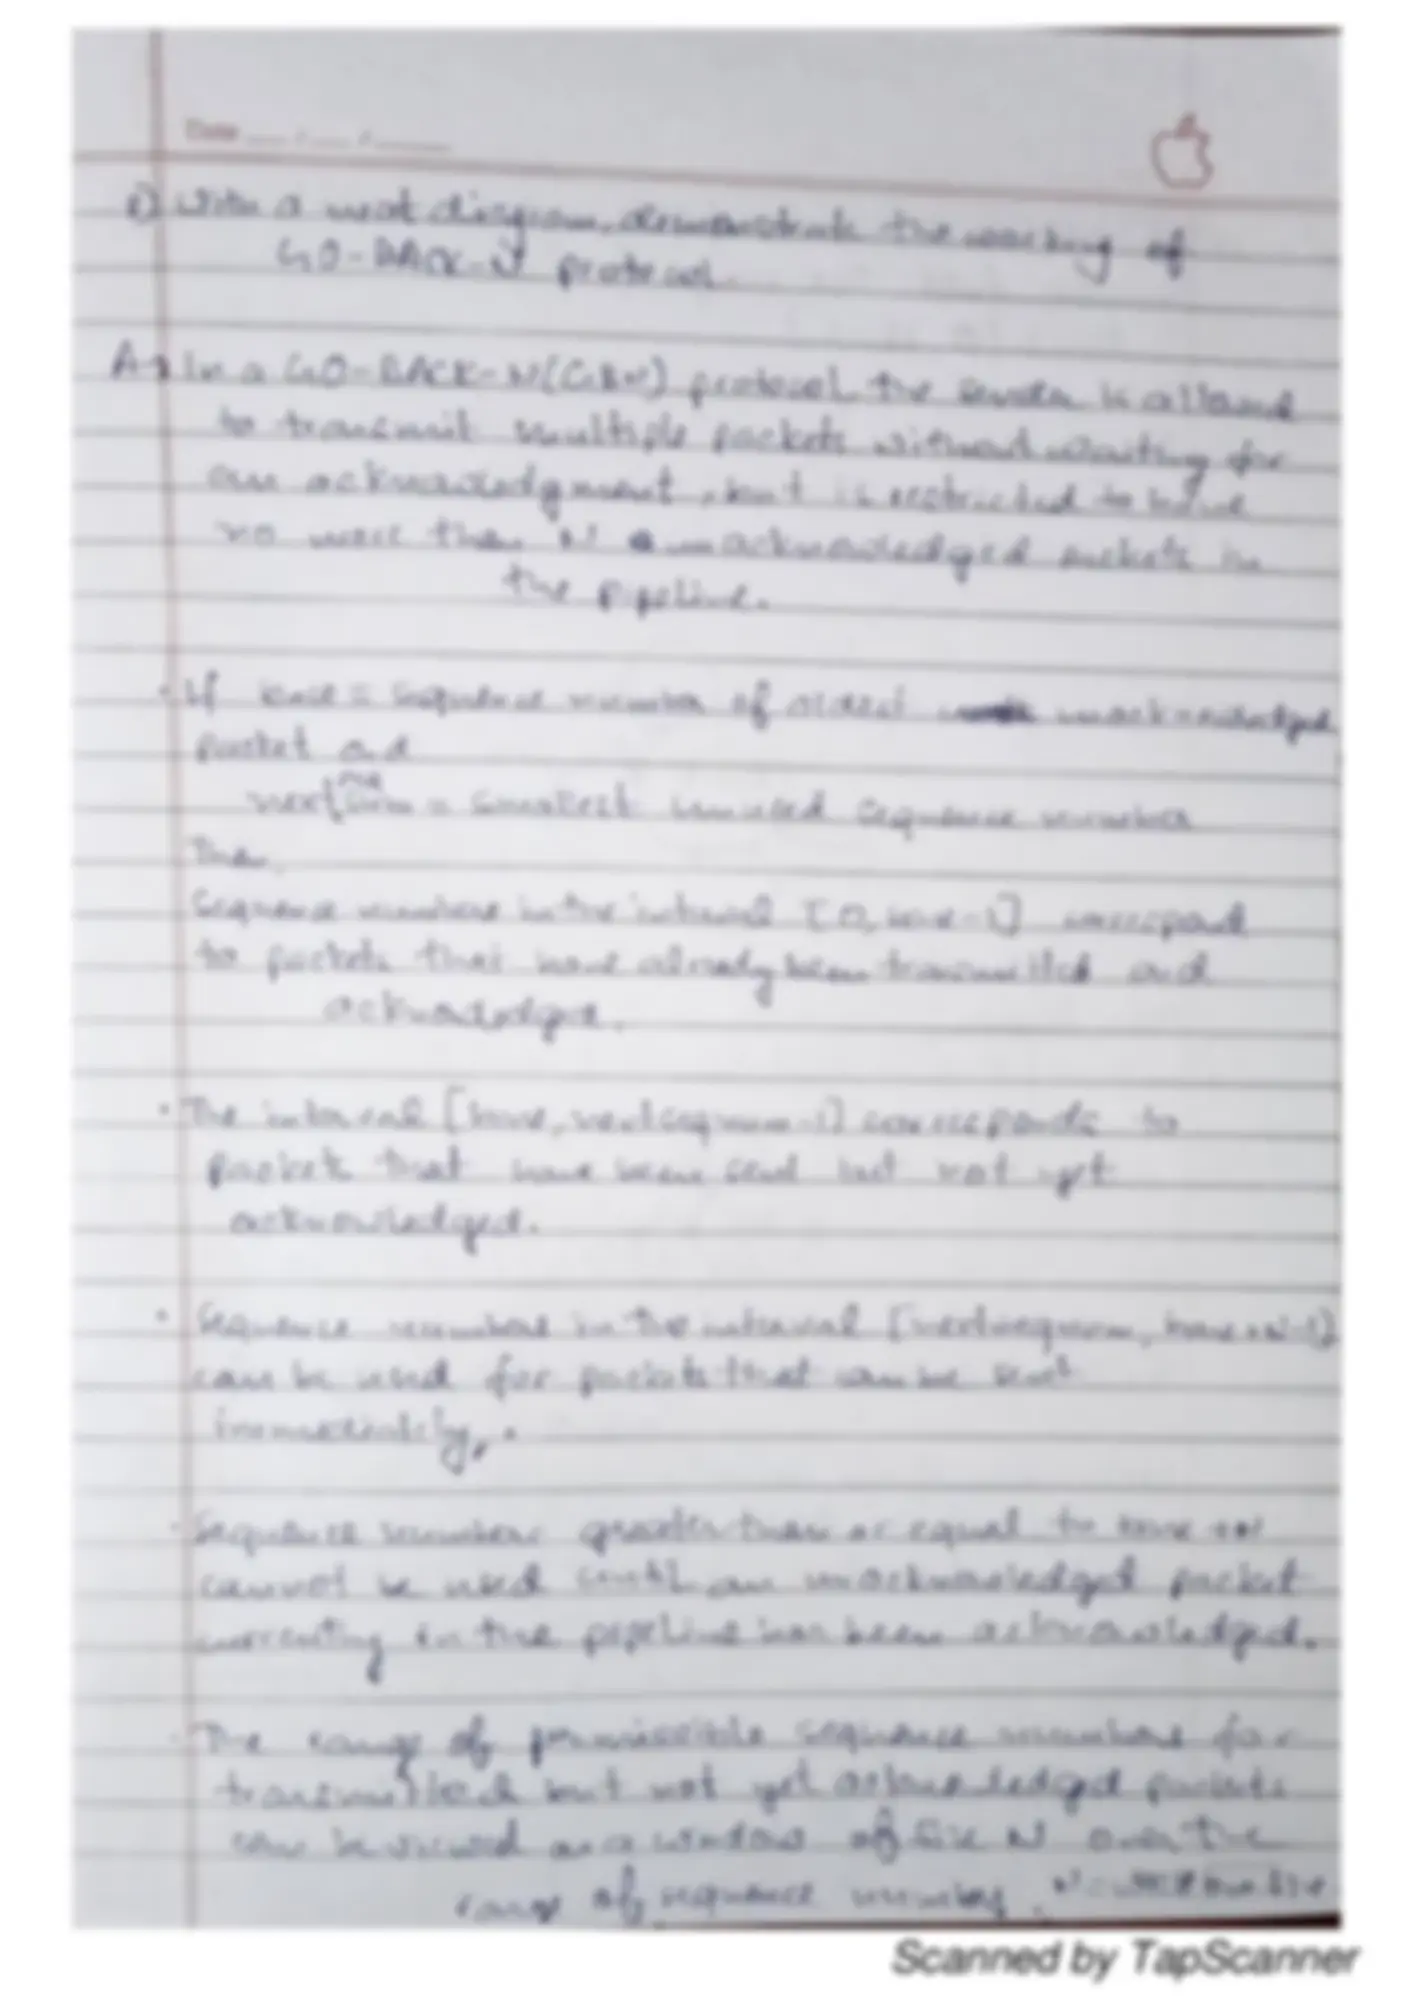 Date
With a neat diagram, demonstrate the working of
GO-BACK-N protocol.
A→ In a GO-BACK-N(GBN) protocol, the sender is allowed
to transmit multiple packets without waiting for
an acknowledgment, but is restricted to have
no more than N unacknowledged packets in
the pipeline.
· If base = sequence number of oldest unacknowledged
packet and
nextseqnum = smallest unused sequence number
Then,
Sequence numbers in the interval [0, base-1] correspond
to packets that have already been transmitted and
acknowledged.
· The interval [base, nextseqnum-1] corresponds to
packets that have been sent but not yet
acknowledged.
· Sequence numbers in the interval [nextseqnum, base+N-1]
can be used for packets that can be sent
immediately.
· Sequence numbers greater than or equal to base+N
cannot be used until an unacknowledged packet
in the pipeline has been acknowledged.
· The range of permissible sequence numbers for
transmitted but not yet acknowledged packets
can be viewed as a window of size N over the
range of sequence number. N = window size
Scanned by TapScanner